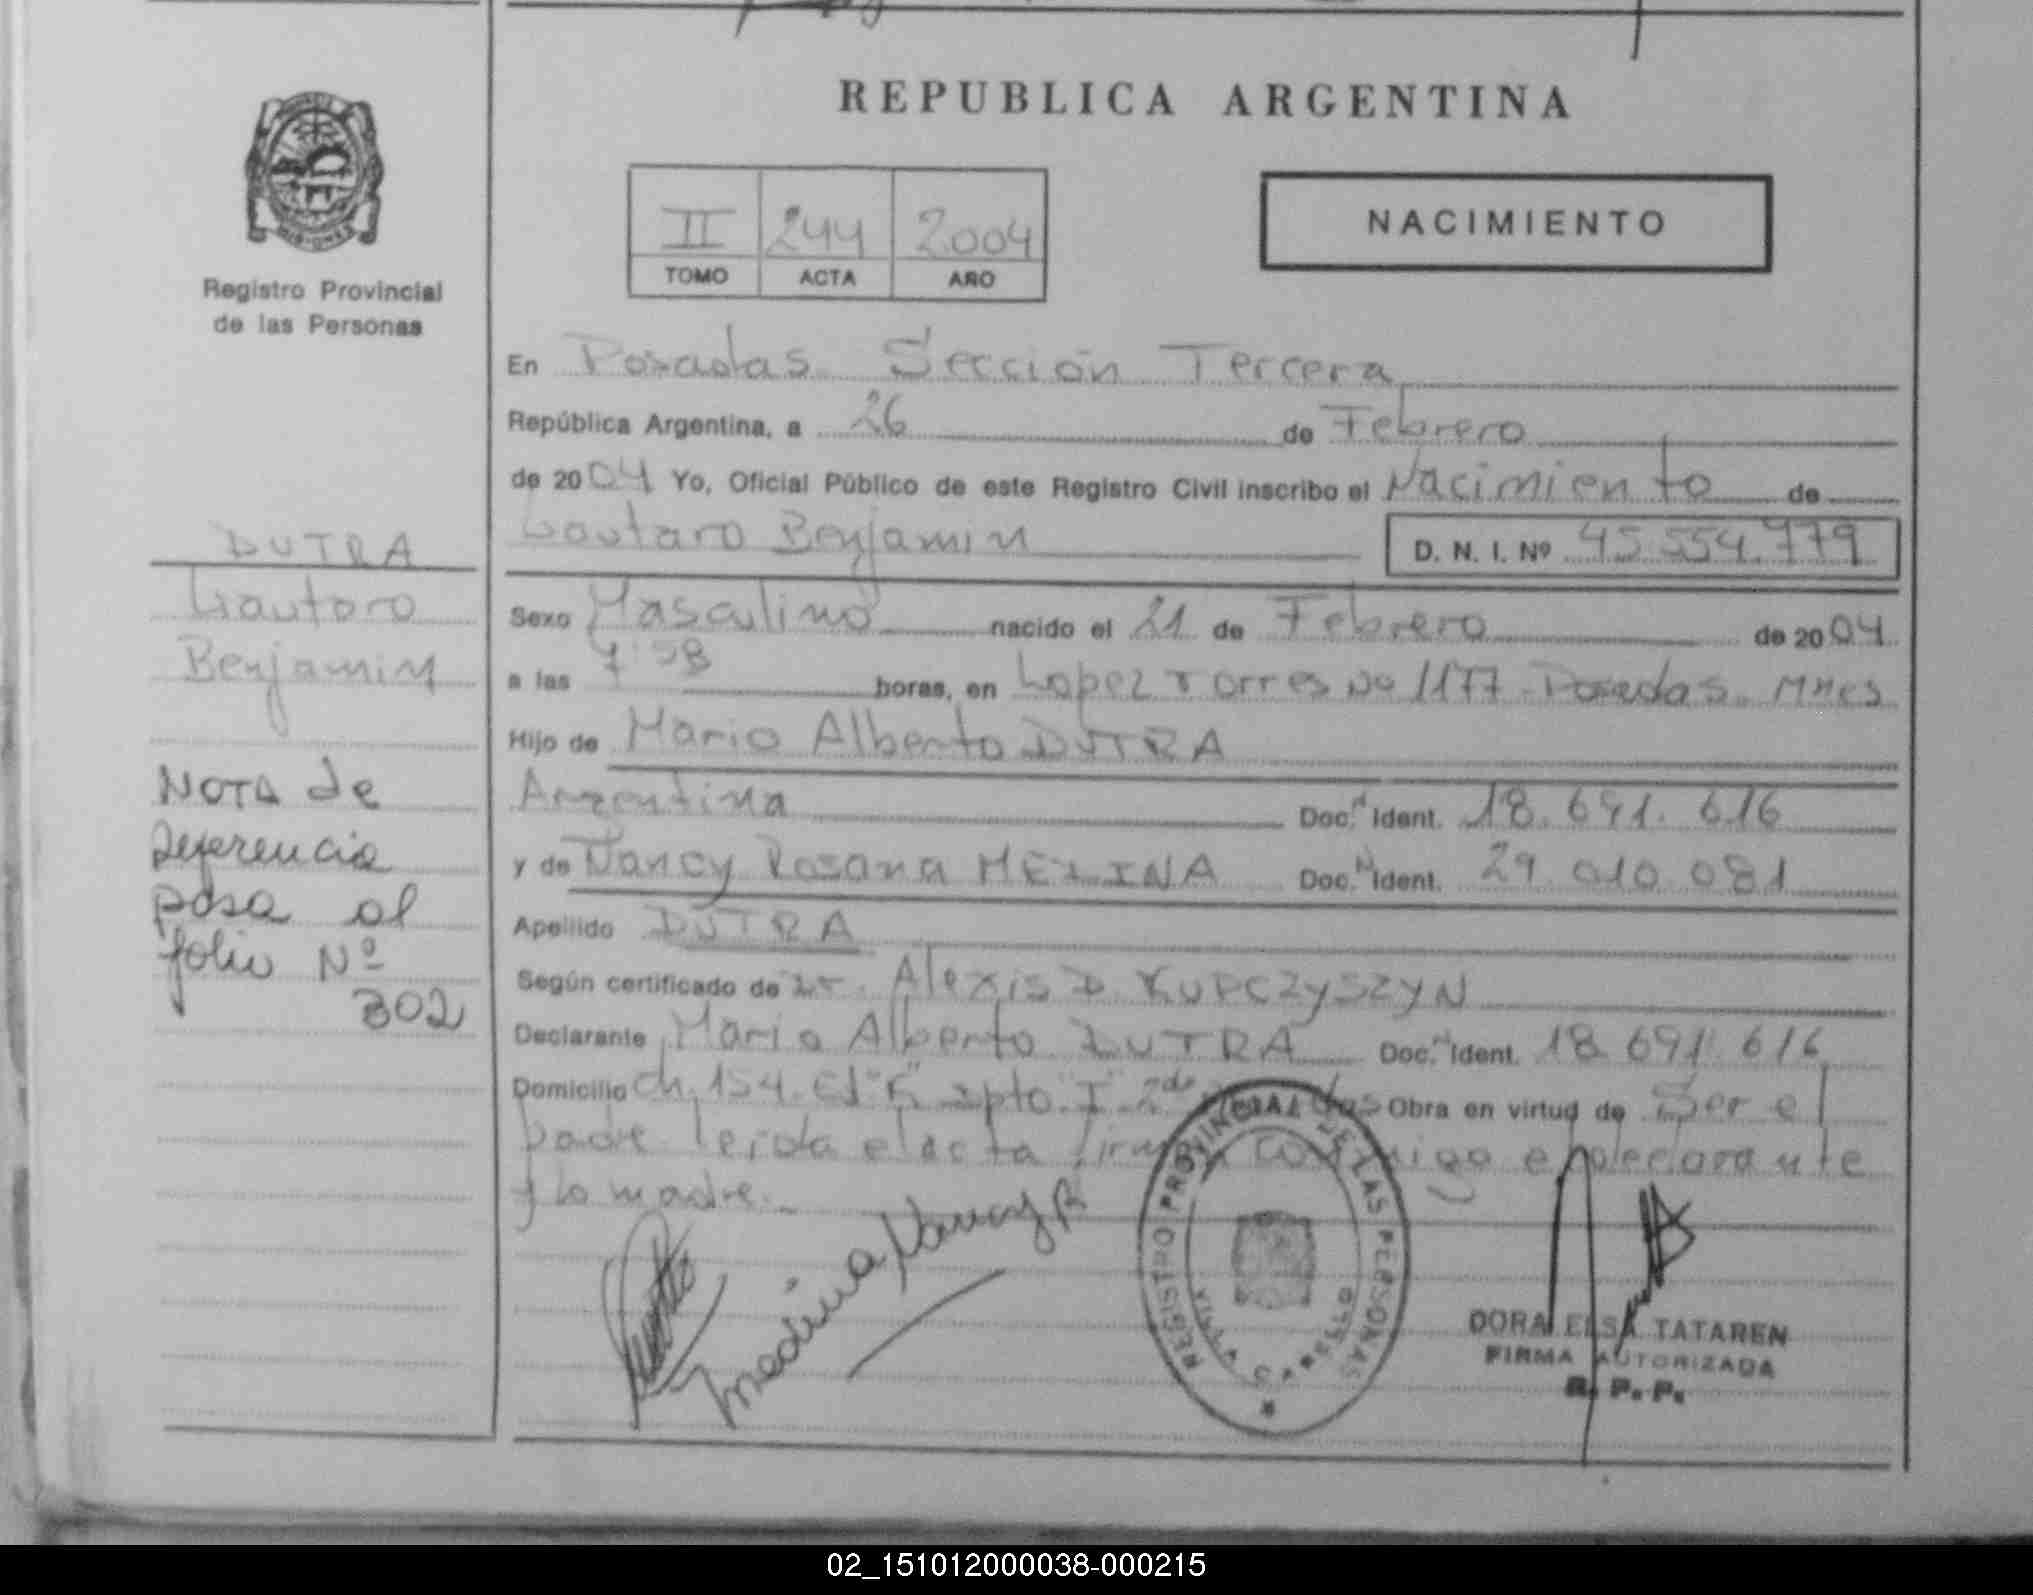 REPUBLICA ARGENTINA
II 244 2004
TOMO ACTA AÑO
NACIMIENTO
MISIONES
Registro Provincial
de las Personas
En Posadas Sección Tercera
República Argentina, a 26 de Febrero
de 2004 Yo, Oficial Público de este Registro Civil inscribo el Nacimiento de
Lautaro Benjamin D. N. I. Nº 45.554.779
DUTRA
Lautaro
Benjamin
Sexo Masculino nacido el 21 de Febrero de 2004
a las 7:58 horas, en Lopez Torres No 1177 Posadas Mnes
Hijo de Mario Alberto DUTRA
Argentina Doc. Ident. 18.691.616
y de Nancy Rosana Doc. Ident. 29.010.081
Apellido DUTRA
Según certificado de Dr. Alexis D. KUPCZYSZYN
Declarante Mario Alberto DUTRA Doc. Ident. 18.691.616
Domicilio Ch. 154. Ed "F" Dpto "I" 2do Obra en virtud de Ser el
padre leida el acta firma conmigo el declarante
y la madre.
NOTA de
Referencia
pasa al
folio Nº
302
Medina Nancy R
REGISTRO PROVINCIAL DE LAS PERSONAS
DORA ELSA TATAREN
FIRMA AUTORIZADA
R. P. P.
02_151012000038-000215